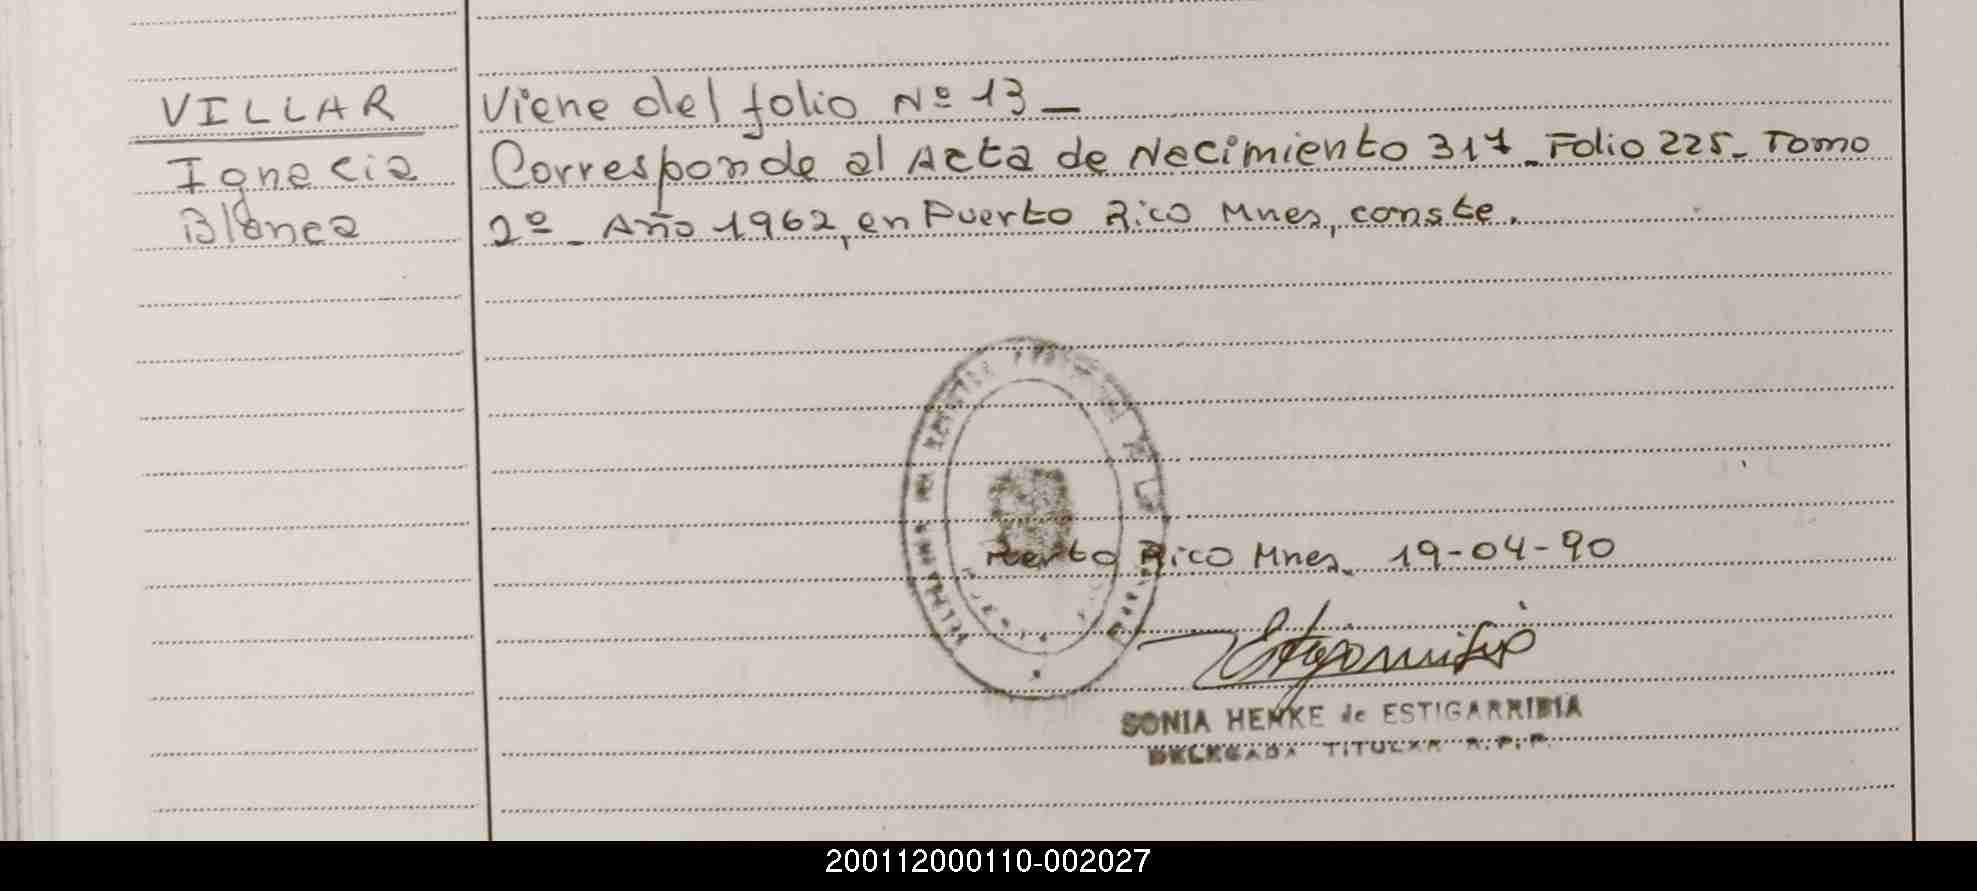 VILLAR
Ignacia
Blanca
Viene del folio Nº 13_
Corresponde al Acta de Nacimiento 317_Folio 225_Tomo
2º_Año 1962, en Puerto Rico Mnes, conste.
Puerto Rico Mnes, 19-04-90
SONIA HENKE de ESTIGARRIBIA
DELEGADA TITULAR R.P.P.
200112000110-002027